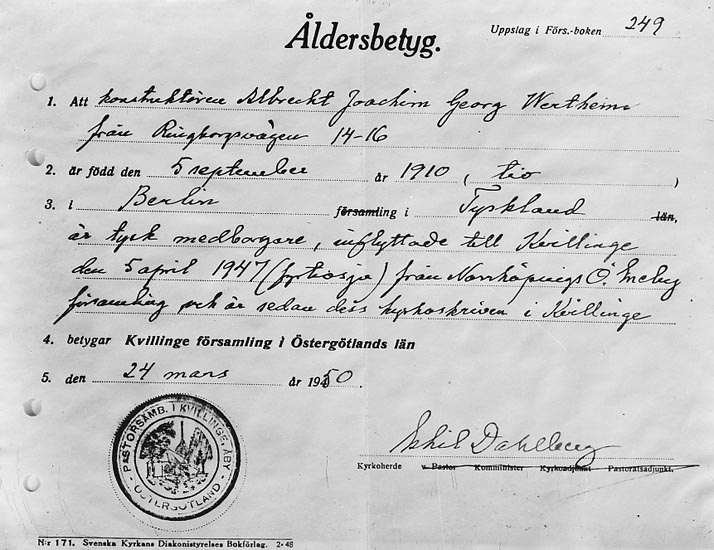 Uppslag i Förs.-boken 249
Åldersbetyg.
1. Att konstruktören Albrecht Joachim Georg Wertheim
från Ringborgsvägen 14-16
2. är född den 5 september år 1910 (tio)
3. i Berlin församling i Tyskland län,
är tysk medborgare, inflyttade till Kvillinge
den 5 april 1947 (fyrtiosju) från Norrköpings Ö. Eneby
församling och är sedan dess kyrkoskriven i Kvillinge
4. betygar Kvillinge församling i Östergötlands län
5. den 24 mars år 1950.
PASTORSÄMB. I KVILLINGE, ÅBY
ÖSTERGÖTLAND
Eskil Dahlberg
Kyrkoherde v. Pastor Komminister Kyrkoadjunkt Pastoratsadjunkt.
N:r 171. Svenska Kyrkans Diakonistyrelses Bokförlag. 2-48